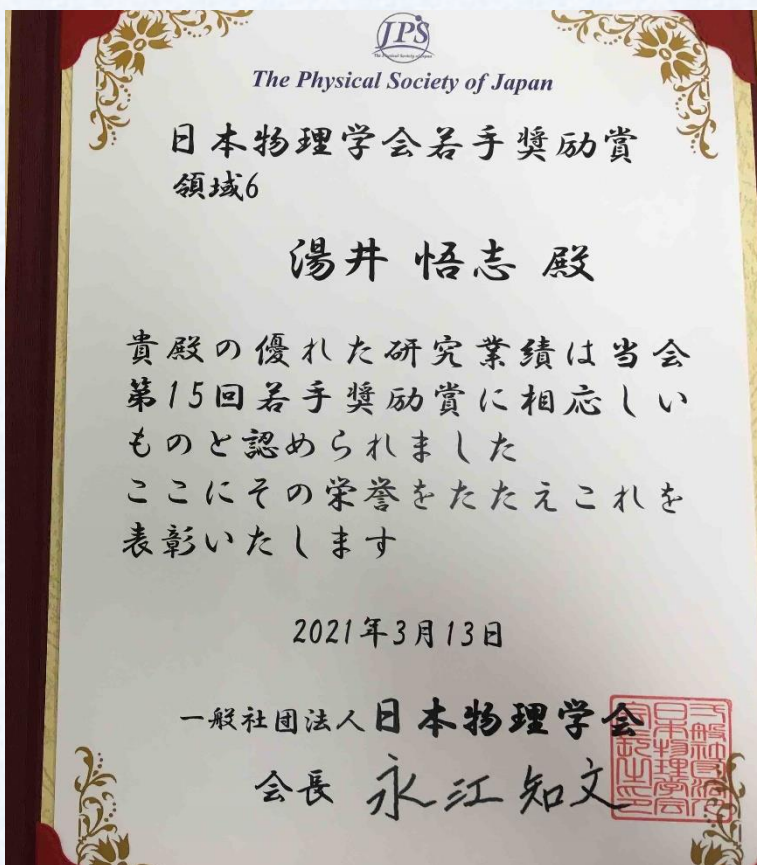 JPS
The Physical Society of Japan
日本物理学会若手奨励賞
領域6
湯井 悟志 殿
貴殿の優れた研究業績は当会
第15回若手奨励賞に相応しい
ものと認められました
ここにその栄誉をたたえこれを
表彰いたします
2021年3月13日
一般社団法人日本物理学会
会長 永江知文